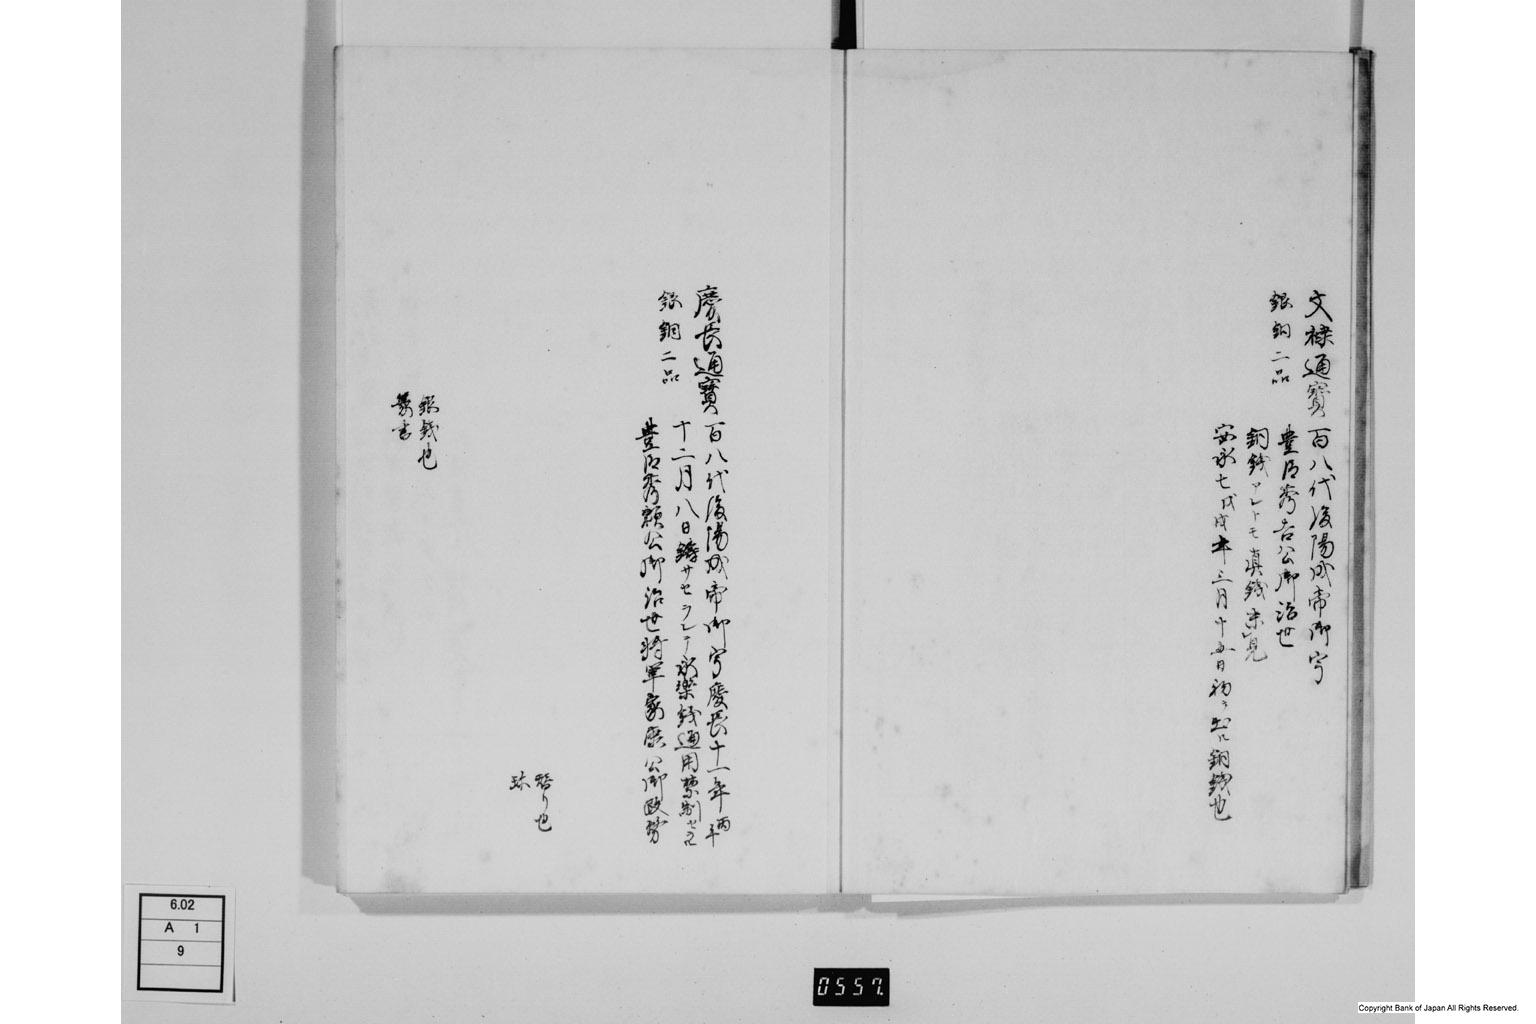 文禄通寳 百八代後陽成帝御宇
銀銅二品
豊臣秀吉公御治世
銅銭アレトモ真銭未見
安永七戊戌年三月十五日初テ出ル銅銭也
慶長通寳 百八代後陽成帝御宇慶長十一年丙午
銀銅二品
十二月八日鋳サセラレテ永樂銭通用禁制セラル
豊臣秀頼公御治世将軍家康公御政務
銀銭也
6.02
A 1
9
0557.
Copyright Bank of Japan All Rights Reserved.